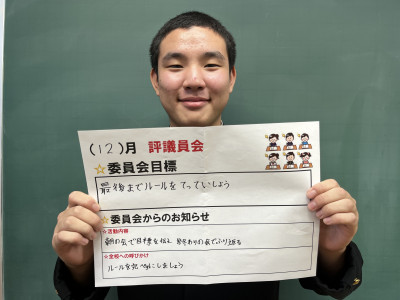 (12)月 評議員会
☆委員会目標
最後までルールをてっていしよう
☆委員会からのお知らせ
☆活動内容
朝の会で目標を伝え 帰りの会でふり返る
☆全校への呼びかけ
ルールを大切にしましょう